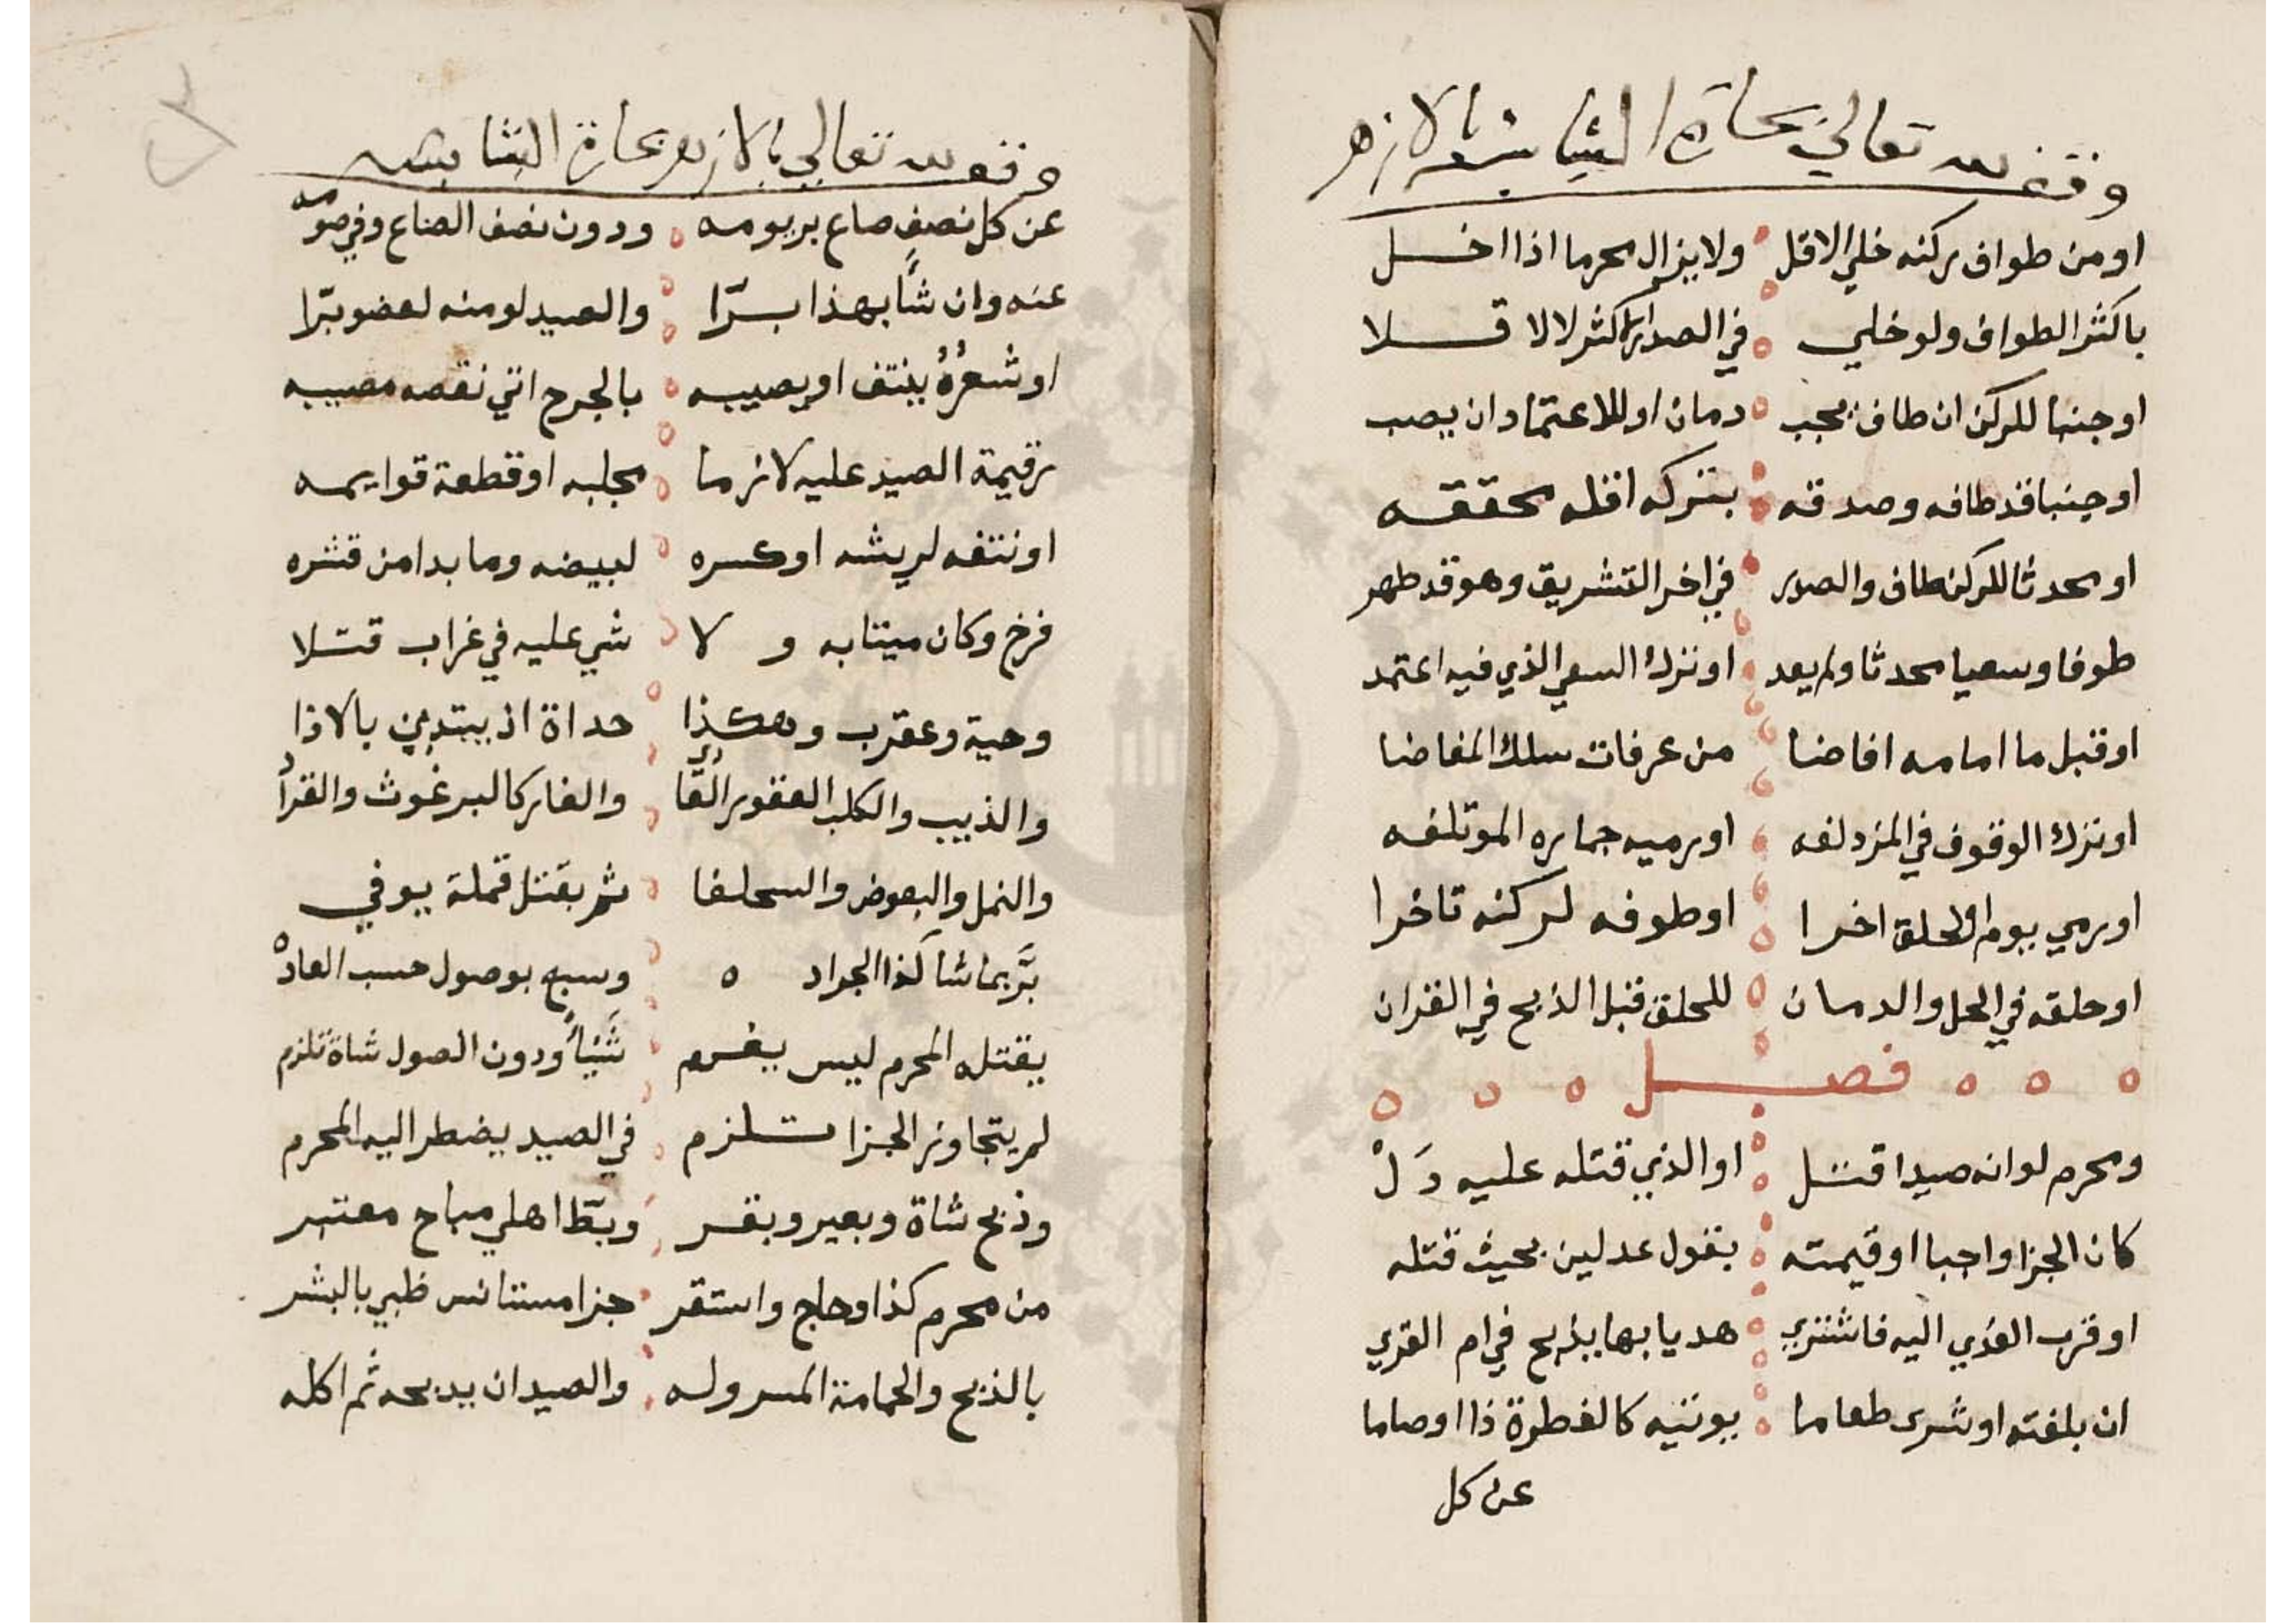 وقف لله تعالي بحارة الشابشه بالازهر
اومن طواف ركنه خلي الاقل ولا يزال محرما اذا اخل
باكثر الطواف ولو خلي في الصدر اكثر لا لا قلا
اوجنبا للركن ان طاف يجب دمان او للاعتماد ان يصب
اوجنبا قد طافه وصدقه بتركه اقله محققه
اومحدثا للركن طاف والصدر في اخر التشريق وهو قد طهر
طوفا وسعيا محدثا ولم يعد اوترك السعي الذي فيه اعتمد
اوقبل ما امامه افاضا من عرفات سلك المفاضا
اوترك الوقوف في المزدلفه اورميه جماره الموتلفه
اورمي يوم اولحلق اخرا اوطوفه لركنه تاخرا
اوحلقه في الحل والدمان للحلق قبل الذبح في القران
فصل
ومحرم لو انه صيدا قتل او الذي قتله عليه دَلْ
كان الجزا واجبا اوقيمته بقول عدلين بحيث قتله
اوقرب الفزي اليه فاشتري هديا بها يذبح في ام القري
ان بلغته اوشرى طعاما يوتيه كالفطرة ذا اوصاما
عن كل
وقف لله تعالي بالازهر بحارة الشابشه
عن كل نصف صاع بر يومه ودون نصف الصاع وفي صومه
عنه وان شأ بهذا برّا والصيد لو منه لعضو بترا
او شعرُهُ ينتف او يصيبه بالجرح اتي نقصه مصيبه
ترقيمة الصيد عليه لازما بجلبه اوقطعة قوايمه
اونتفه لريشه اوكسره لبيضه وما بدا من قشره
فرخ وكان ميتابه ولا شي عليه في غراب قتلا
وحية وعقرب وهكذا حداة اذ يبتدين بالاذا
والذيب والكلب العقور الفار كالبرغوث والقراد
والنمل والبعوض والسحلفا ثم بقتل قملة يوفي
بَّر بما شا كذا الجراد ه وسبع بوصول حسب العادْ
يقتله المحرم ليس يغرم شَيْأً ودون الصول شاة تلزم
لم يتجاوز الجزا تلزم في الصيد يضطر اليه المحرم
وذبح شاة وبعير وبقر وبطّ اهلي مباح معتبر
من محرم كذا وحاج واستقر جزا مستانس ظبي بالبشر
بالذبح والحمامة المسروله والصيد ان يدبحه ثم اكله